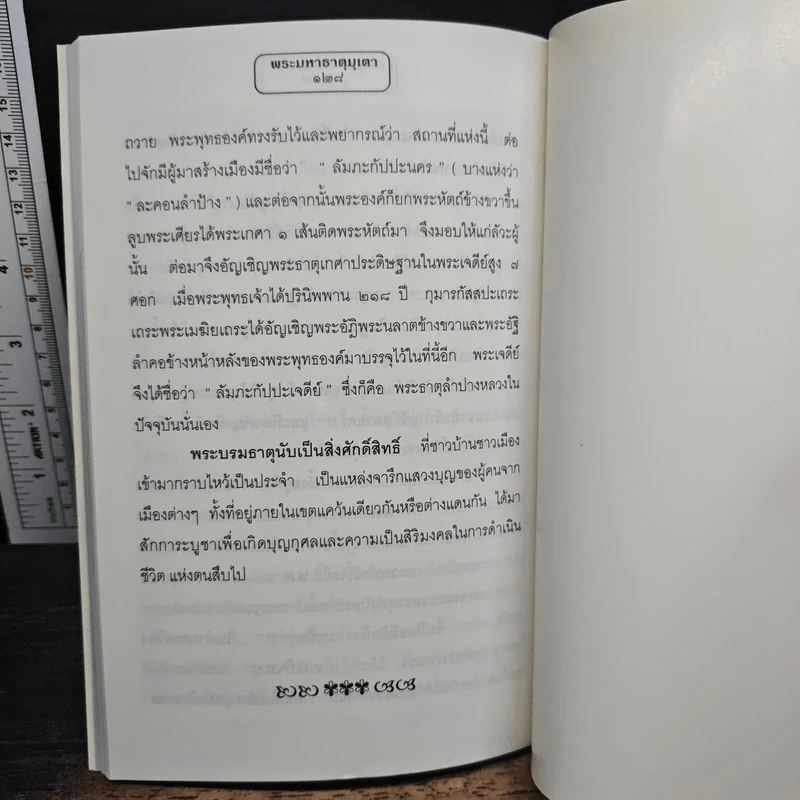 พระมหาธาตุมุเตา
๑๒๘
ถวาย พระพุทธองค์ทรงรับไว้และพยากรณ์ว่า สถานที่แห่งนี้ ต่อ
ไปจักมีผู้มาสร้างเมืองมีชื่อว่า “ ลัมภะกัปปะนคร ” ( บางแห่งว่า
“ ละคอนลำป้าง ” ) และต่อจากนั้นพระองค์ก็ยกพระหัตถ์ข้างขวาขึ้น
ลูบพระเศียรได้พระเกศา ๑ เส้นติดพระหัตถ์มา จึงมอบให้แก่ลัวะผู้
นั้น ต่อมาจึงอัญเชิญพระธาตุเกศาประดิษฐานในพระเจดีย์สูง ๗
ศอก เมื่อพระพุทธเจ้าได้ปรินิพพาน ๒๑๘ ปี กุมารกัสสปะเถระ
เถระพระเมฆิยเถระได้อัญเชิญพระอัฎิพระนลาตข้างขวาและพระอัฐิ
ลำคอข้างหน้าหลังของพระพุทธองค์มาบรรจุไว้ในที่นี้อีก พระเจดีย์
จึงได้ชื่อว่า “ ลัมภะกัปปะเจดีย์ ” ซึ่งก็คือ พระธาตุลำปางหลวงใน
ปัจจุบันนั่นเอง
พระบรมธาตุนับเป็นสิ่งศักดิ์สิทธิ์ ที่ชาวบ้านชาวเมือง
เข้ามากราบไหว้เป็นประจำ เป็นแหล่งจาริกแสวงบุญของผู้คนจาก
เมืองต่างๆ ทั้งที่อยู่ภายในเขตแคว้นเดียวกันหรือต่างแดนกัน ได้มา
สักการะบูชาเพื่อเกิดบุญกุศลและความเป็นสิริมงคลในการดำเนิน
ชีวิต แห่งตนสืบไป